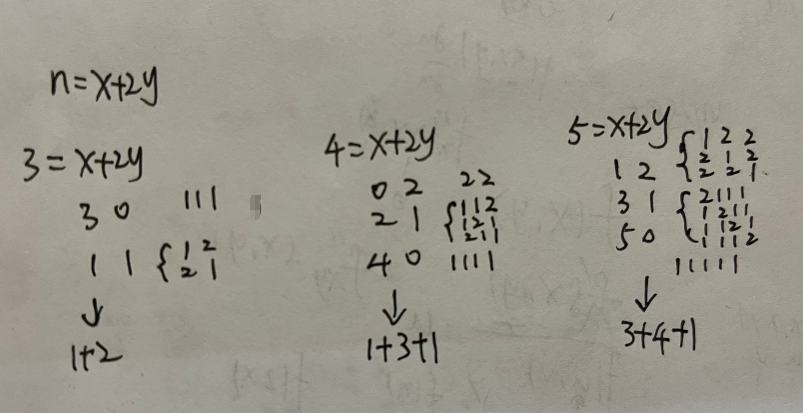 n=x+2y
3=x+2y
3 0 111
1 1 { 12
21
↓
1+2
4=x+2y
0 2 22
2 1 { 112
121
211
4 0 1111
↓
1+3+1
5=x+2y
1 2 { 1 2 2
2 1 2
2 2 1
3 1 { 2111
1211
1121
1112
5 0 11111
↓
3+4+1